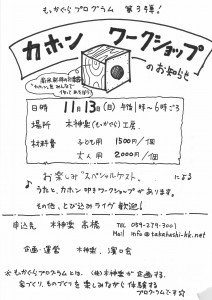 もっかぐらプログラム 第3弾!
カホン ワークショップ
のお知らせ
日時 11月13日(日)午後1時～6時ごろ
場所 木神楽(もっかぐら)工房
材料費 子ども用 1500円/個
大人用 2000円/個
お楽しみ"スペシャルゲスト による
うたと、カホン叩きワークショップがあります。
その他、とび込みライヴ歓迎!
申込先 木神楽 高橋 TEL 059-279-3001
Mail info@takahashi-kk.net
企画・運営 木神楽、濱口会
※もっかぐらプログラムとは、(株)木神楽が企画する、
家づくり、ものづくりを楽しみながら体験する
プログラムです☆